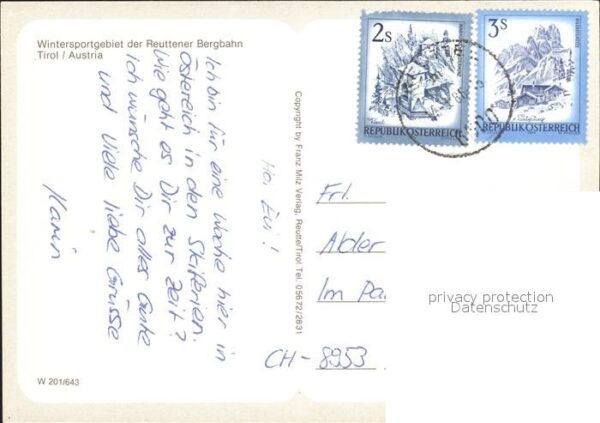 Wintersportgebiet der Reuttener Bergbahn
Tirol / Austria
2s
REPUBLIK ÖSTERREICH
3s
REPUBLIK ÖSTERREICH
Hoi Evi!
Ich bin für eine Woche hier in
Österreich in den Skiferien.
Wie geht es Dir zur Zeit?
Ich wünsche Dir alles Gute
und Viele liebe Grüsse
Karin
Copyright by Franz Milz Verlag, Reutte/Tirol Tel. 05672/2831
Frl.
Alder
Im Pa
CH-8953
privacy protection
Datenschutz
W 201/643